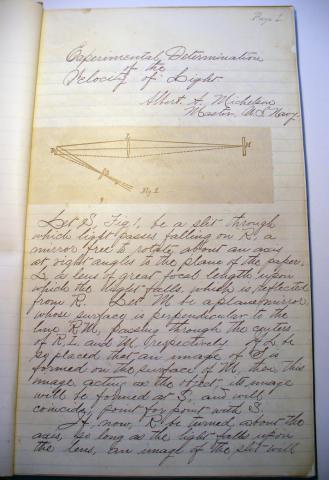 Page 1
Experimental Determination
of the
Velocity of Light
Albert A. Michelson
Master, U.S. Navy
Fig 1
Let S, Fig 1, be a slit through
which light passes, falling on R, a
mirror free to rotate about an axis
at right angles to the plane of the paper.
L a lens of great focal length, upon
which the light falls, which is reflected
from R. Let M be a plane mirror
whose surface is perpendicular to the
line R, M, passing through the centers
of R, L and M, respectively. If L be
so placed that an image of S is
formed on the surface of M, then, this
image acting as the object, its image
will be formed at S, and will
coincide, point for point with S.
If, now, R be turned about the
axis, so long as the light falls upon
the lens, an image of the slit will